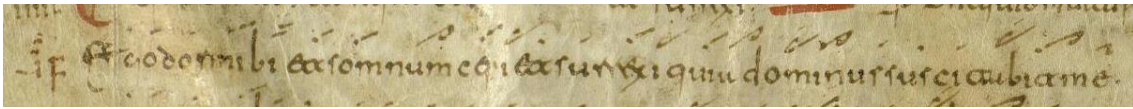 Ego dormibi et somnum cepi et surrexi quia dominus suscitabit me.